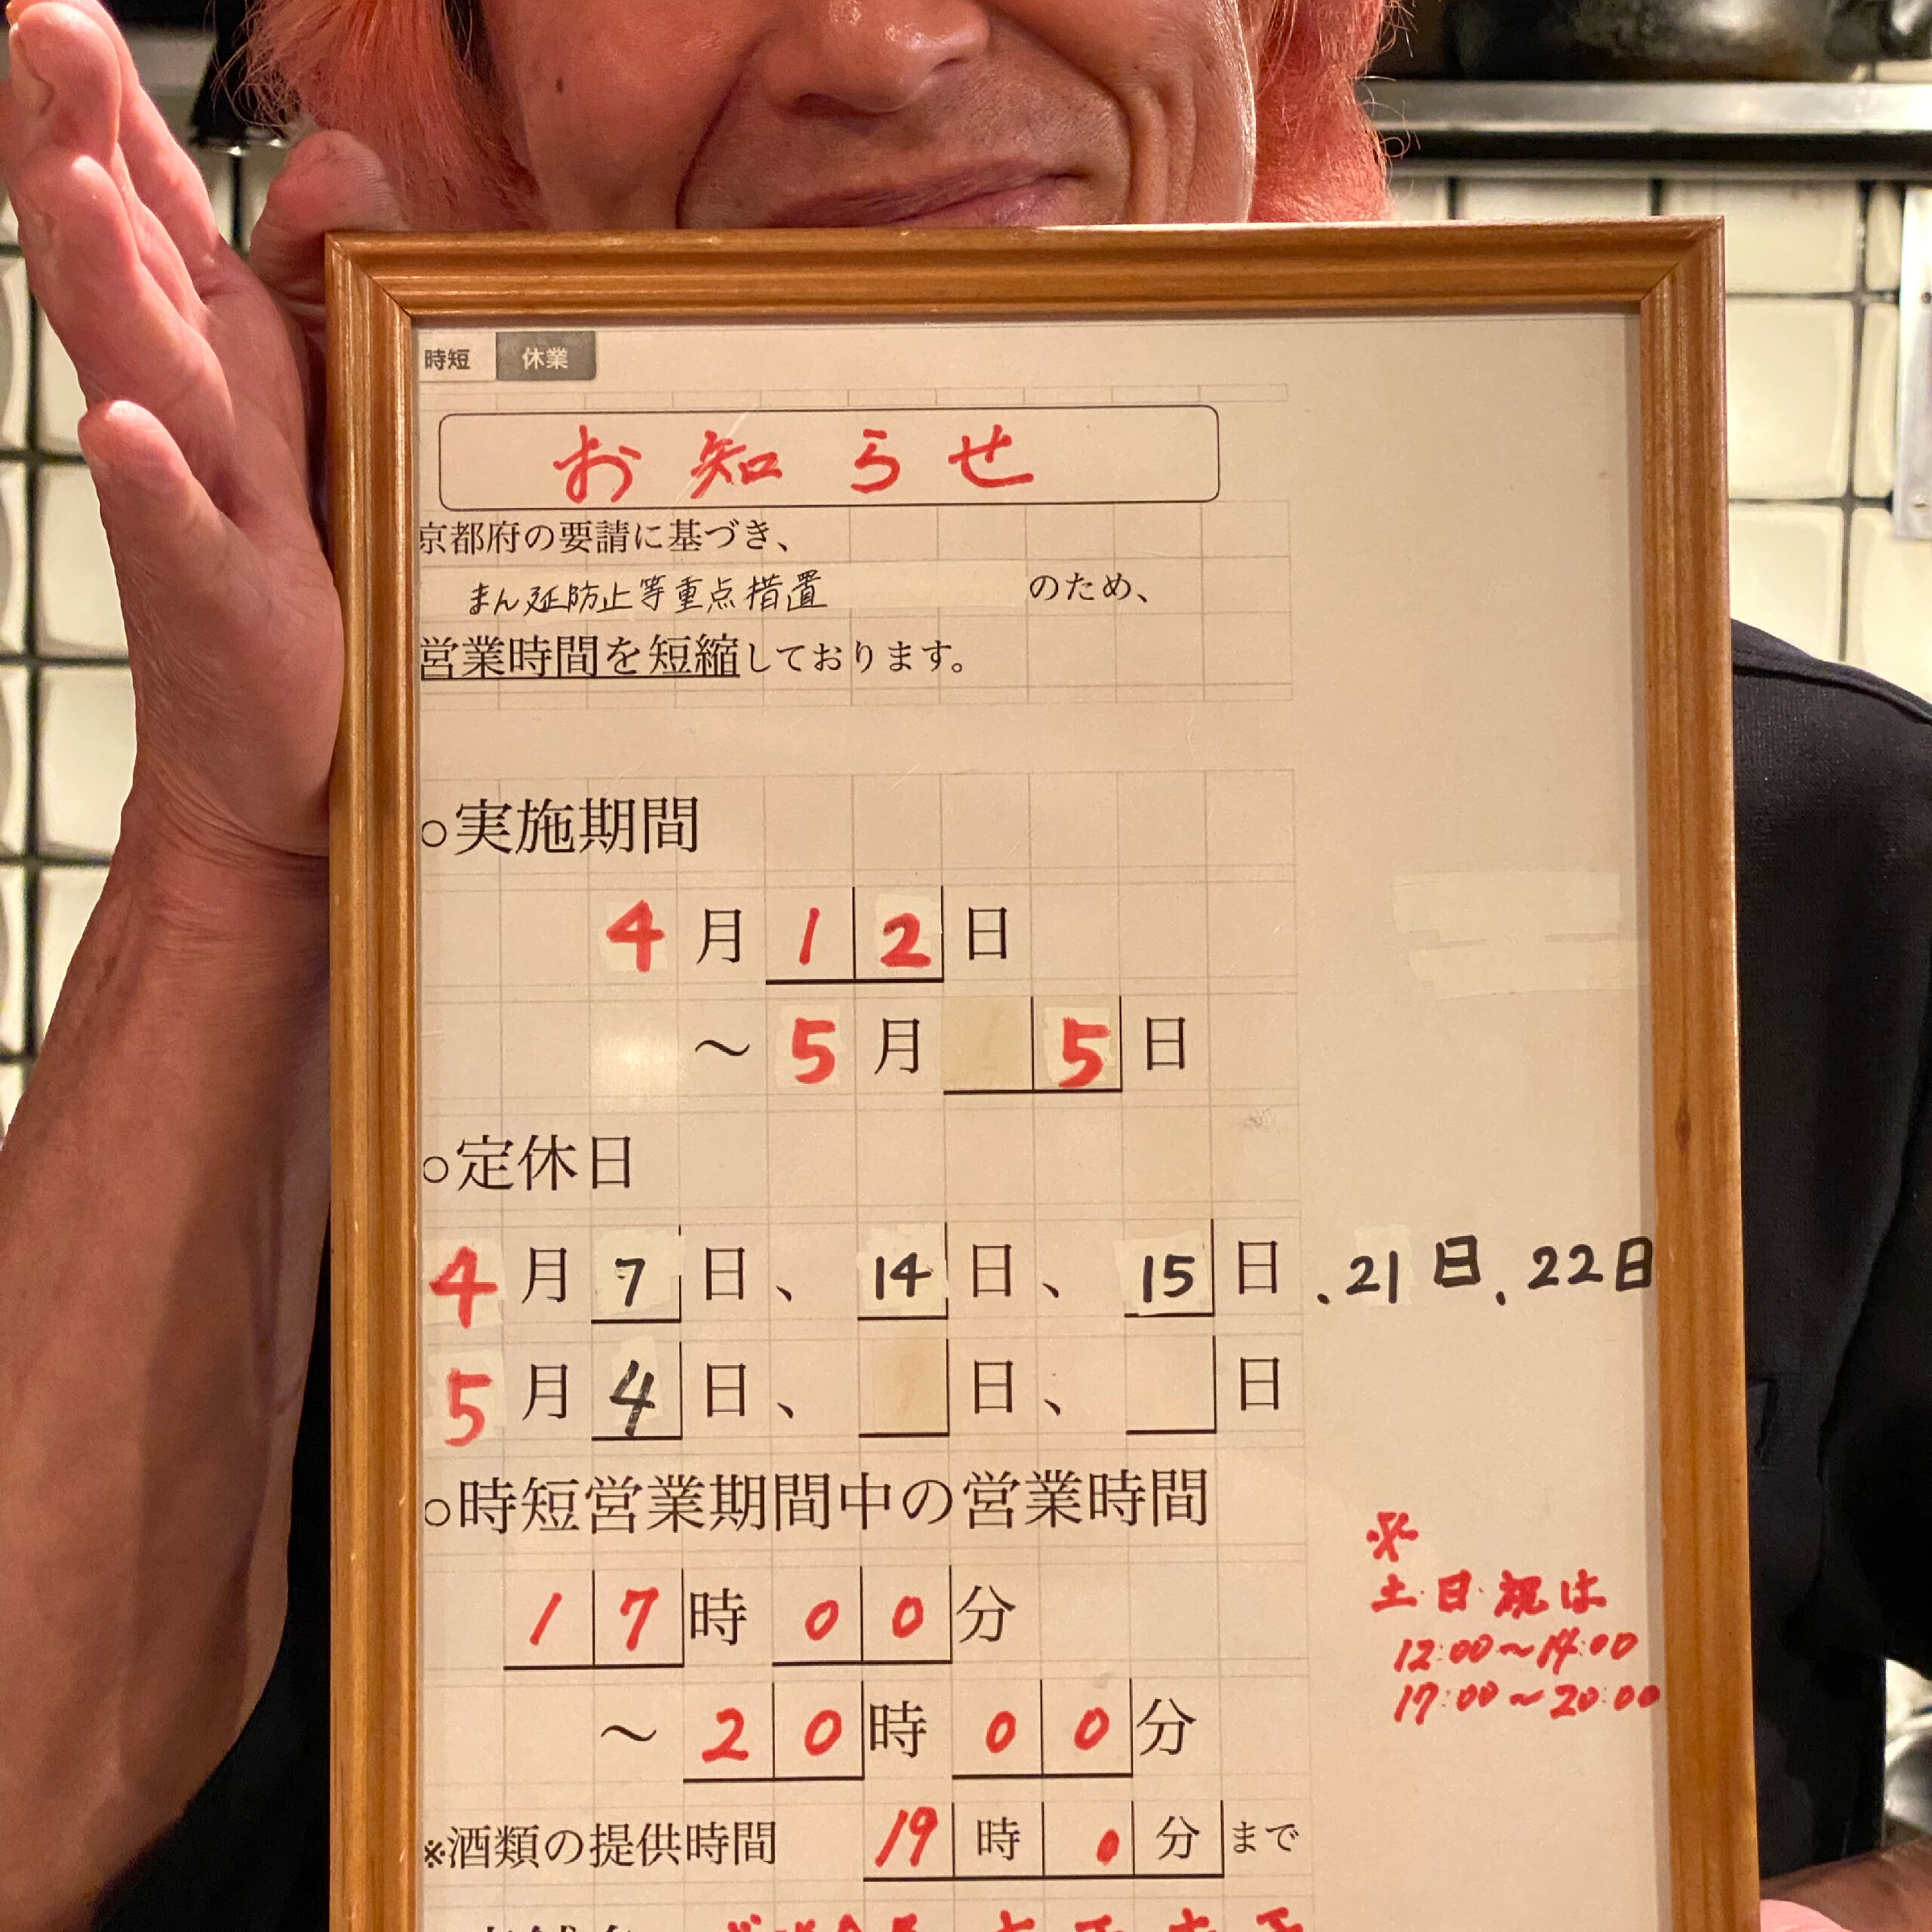 時短 休業
お知らせ
京都府の要請に基づき、
まん延防止等重点措置 のため、
営業時間を短縮しております。
○実施期間
4月12日
～5月5日
○定休日
4月7日、14日、15日、21日、22日
5月4日、日、日
○時短営業期間中の営業時間
17時00分
～20時00分
※酒類の提供時間 19時0分まで
※
土・日・祝は
12:00～14:00
17:00～20:00